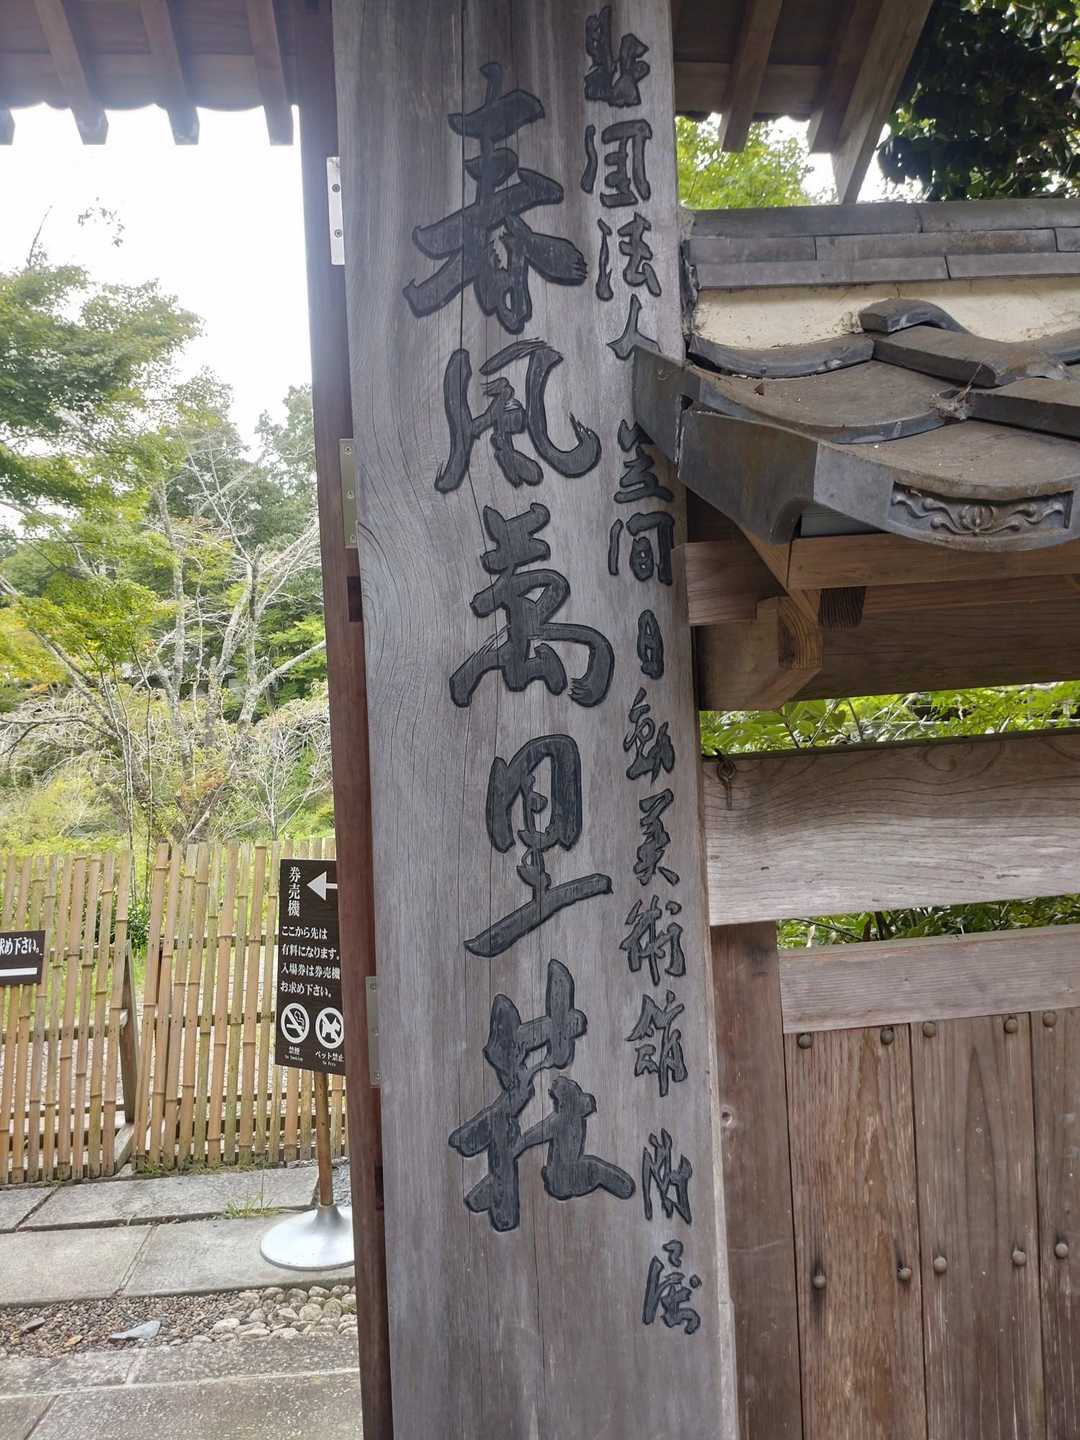 財団法人 笠間日動美術館附属
春風萬里荘
券売機
ここから先は
有料になります。
入場券は券売機
お求め下さい。
禁煙
ペット禁止
求め下さい。